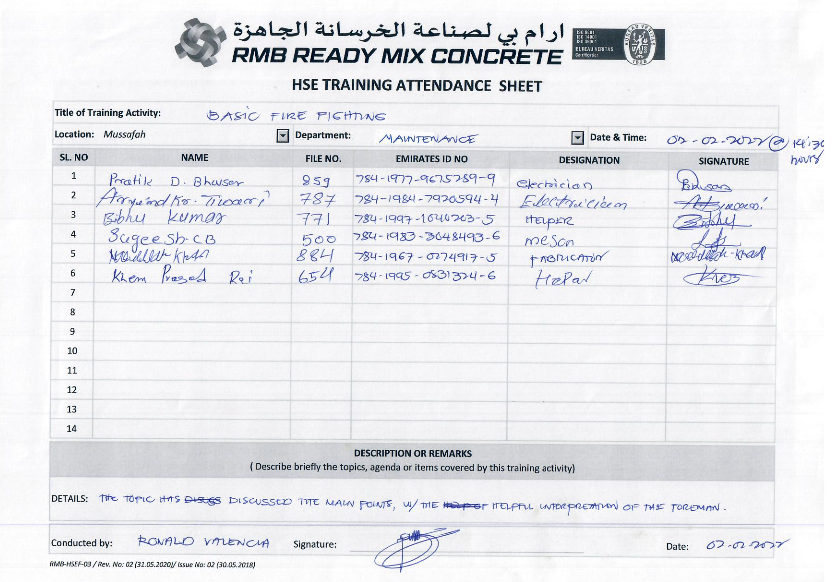 ارام بي لصناعة الخرسانة الجاهزة
RMB READY MIX CONCRETE
ISO 9001
ISO 14001
BUREAU VERITAS
Certification
BUREAU VERITAS
1828
HSE TRAINING ATTENDANCE SHEET
Title of Training Activity: BASIC FIRE FIGHTING
Location: Mussafah Department: MAINTENANCE Date & Time: 02-02-2022 @ 14:30 hours
SL. NO NAME FILE NO. EMIRATES ID NO DESIGNATION SIGNATURE
1 Pratik D. Bhavsar 859 784-1977-9675289-9 electrician
2 Arvind Kr. Tiwari 787 784-1984-7920594-4 Electricician
3 Bibhu Kumar 771 784-1997-1640263-5 HELPER
4 Sugeesh.CB 500 784-1983-3648493-6 meson
5 Khan 884 784-1967-0274917-5 FABRICATOR
6 Khem Prasad Rai 654 784-1995-0831324-6 Helpar
7
8
9
10
11
12
13
14
DESCRIPTION OR REMARKS
( Describe briefly the topics, agenda or items covered by this training activity)
DETAILS: THE TOPIC HAS DISCUSSED THE MAIN POINTS, W/ THE HELPFUL INTERPRETATION OF THE FOREMAN.
Conducted by: RONALD VALENCIA Signature: Date: 02-02-2022
RMB-HSEF-03 / Rev. No: 02 (31.05.2020)/ Issue No: 02 (30.05.2018)